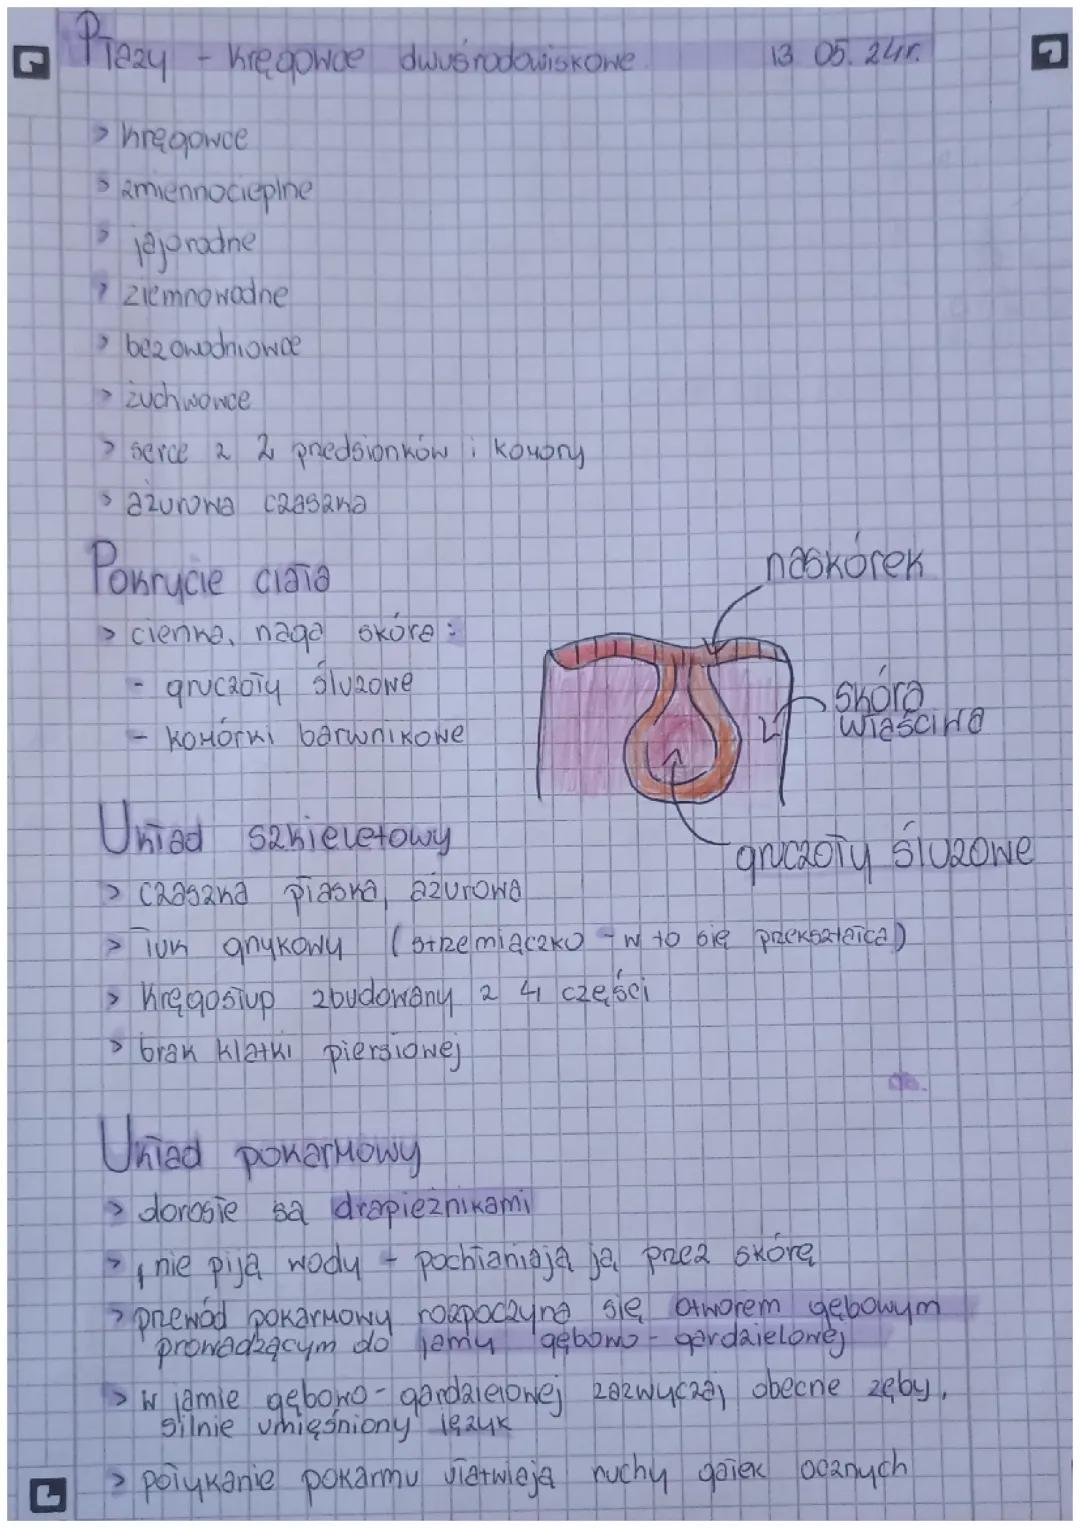 Płazy - kręgowce dwuśrodowiskowe 13.05.24r.
> kręgowce
> zmiennocieplne
> jajorodne
> ziemnowodne
> bezowodniowce
> żuchwowce
> serce z 2 przedsionków i komory
> ażurowa czaszka
Pokrycie ciała
naskórek
> cienka, naga skóra:
- gruczoły śluzowe
- komórki barwnikowe
skóra
właściwa
gruczoły śluzowe
Układ szkieletowy
> czaszka płaska, ażurowa
> łuk gnykowy (strzemiączko - w to się przekształca)
> kręgosłup zbudowany z 4 części
> brak klatki piersiowej
Układ pokarmowy
> dorosłe są drapieżnikami
> nie piją wody - pochłaniają ją przez skórę
> przewód pokarmowy rozpoczyna się otworem gębowym
prowadzącym do jamy gębowo-gardzielowej
> w jamie gębowo-gardzielowej zazwyczaj obecne zęby,
silnie umięśniony język
> połykanie pokarmu ułatwieją ruchy gałek ocznych